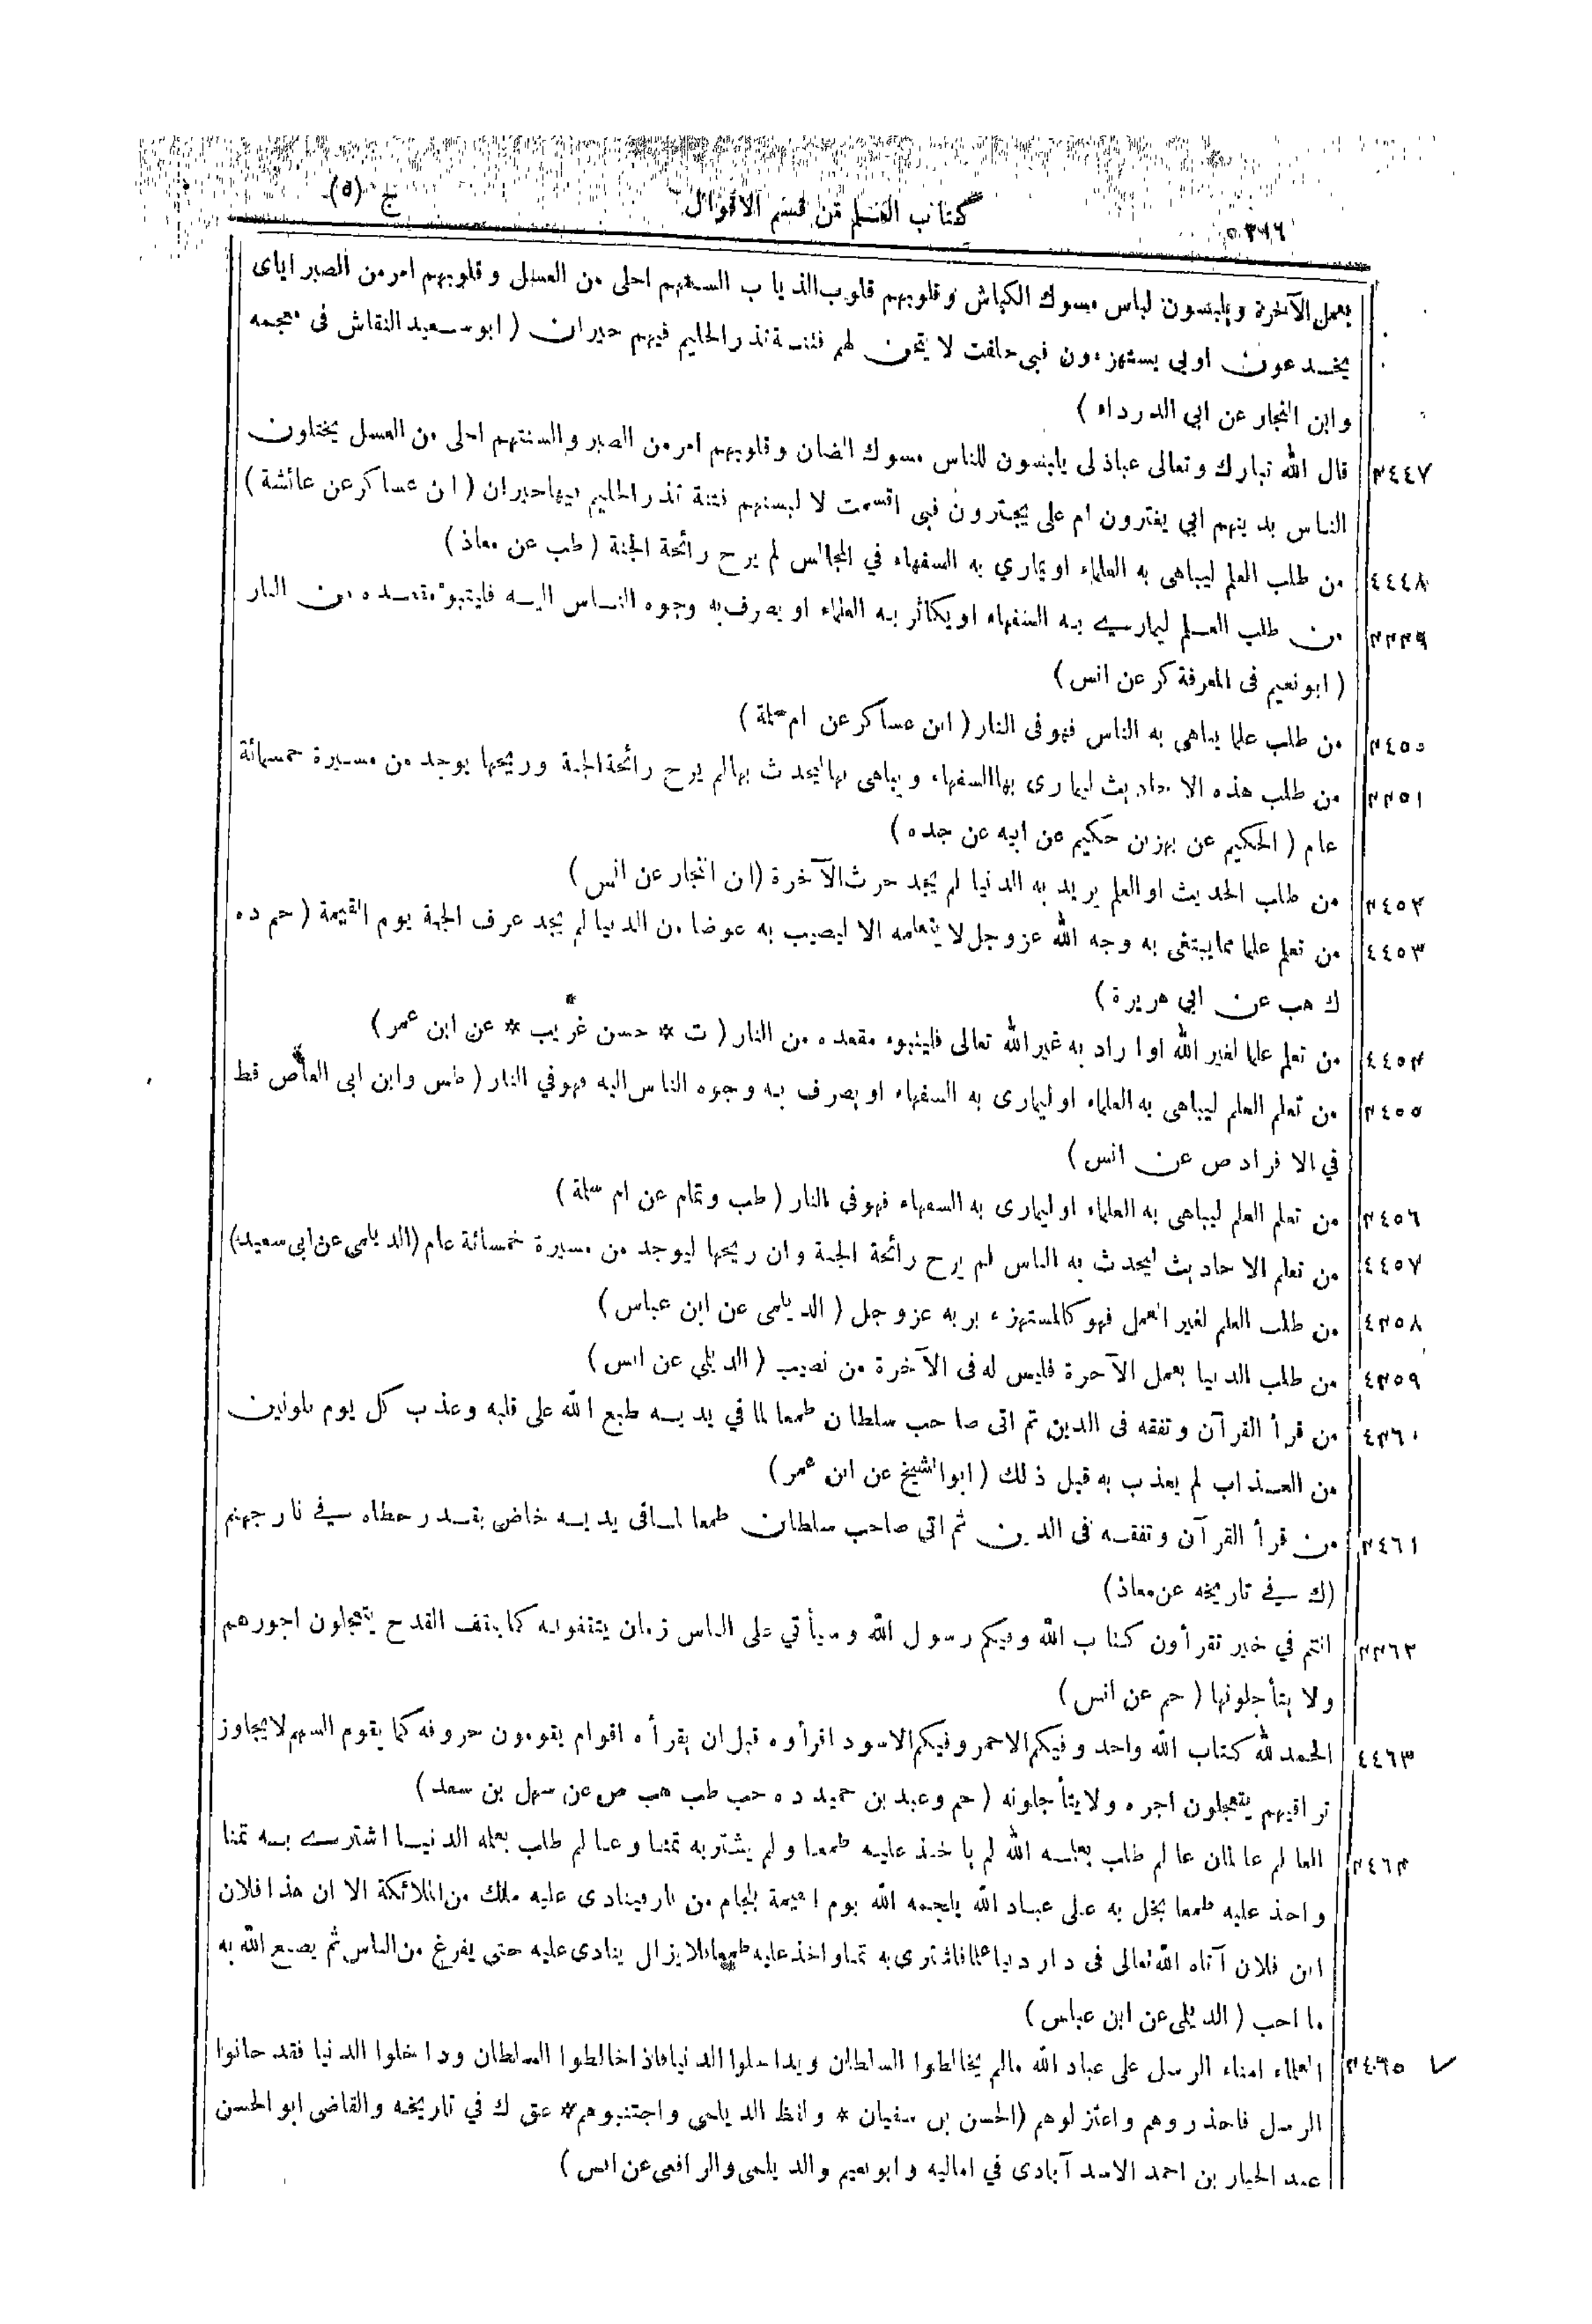 ٣١٦ كتاب العلم من قسم الاقوال ج (٥)
بعمل الآخرة ويلبسون لباس مسوك الكباش وقلوبهم قلوب الذياب السنتهم احلى من العسل وقلوبهم امر من الصبر اياى
يخدعون اوبى يستهزءون فبى حلفت لاتيحن لهم فتنة تذر الحليم فيهم حيران (ابو سعيد النقاش فى معجمه
وابن النجار عن ابي الدرداء)
٤٤٤٧ قال الله تبارك وتعالى عباد لى يلبسون للناس مسوك الضان وقلوبهم امر من الصبر والسنتهم احلى من العسل يختلون
الناس بدينهم ابي يغترون ام على يجترون فبى اقسمت لا لبسنهم فتنة تذر الحليم فيها حيران (ابن عساكر عن عائشة)
٤٤٤٨ من طلب العلم ليباهى به العلماء او يماري به السفهاء في المجالس لم يرح رائحة الجنة (طب عن معاذ)
٤٤٤٩ من طلب العلم ليماري به السفهاء او يكاثر به العلماء او يصرف به وجوه الناس اليه فليتبوء مقعده من النار
(ابو نعيم فى المعرفة كر عن انس)
٤٤٥٠ من طلب علما يباهى به الناس فهو فى النار (ابن عساكر عن ام سلمة)
٤٤٥١ من طلب هذه الا حاديث ليمارى بها السفهاء ويباهى بها ليحدث بها لم يرح رائحة الجنة وريحها يوجد من مسيرة خمسمائة
عام (الحكيم عن بهز بن حكيم عن ابيه عن جده)
٤٤٥٢ من طلب الحديث او العلم يريد به الدنيا لم يجد حرث الآخرة (ابن النجار عن انس)
٤٤٥٣ من تعلم علما مما يبتغى به وجه الله عزوجل لا يتعلمه الا ليصيب به عوضا من الدنيا لم يجد عرف الجنة يوم القيمة (حم د ه
ك هب عن ابي هريرة)
٤٤٥٤ من تعلم علما لغير الله او اراد به غير الله تعالى فليتبوء مقعده من النار (ت * حسن غريب * عن ابن عمر)
٤٤٥٥ من تعلم العلم ليباهى به العلماء او ليمارى به السفهاء او يصرف به وجوه الناس اليه فهو في النار (طس وابن ابى العاص قط
في الا فراد ص عن انس)
٤٤٥٦ من تعلم العلم ليباهى به العلماء او ليمارى به السفهاء فهو فى النار (طب وتمام عن ام سلمة)
٤٤٥٧ من تعلم الا حاديث ليحدث به الناس لم يرح رائحة الجنة وان ريحها ليوجد من مسيرة خمسمائة عام (الديلمى عن ابى سعيد)
٤٤٥٨ من طلب العلم لغير العمل فهو كالمستهزء بربه عزوجل (الديلمى عن ابن عباس)
٤٤٥٩ من طلب الدنيا بعمل الآخرة فليس له فى الآخرة من نصيب (الديلمي عن انس)
٤٤٦٠ من قرأ القرآن وتفقه فى الدين ثم اتى صاحب سلطان طمعا لما في يديه طبع الله على قلبه وعذب كل يوم بلونين
من العذاب لم يعذب به قبل ذلك (ابو الشيخ عن ابن عمر)
٤٤٦١ من قرأ القرآن وتفقه فى الدين ثم اتي صاحب سلطان طمعا لما فى يديه خاض بقدر خطاه في نار جهنم
(ك في تاريخه عن معاذ)
٤٤٦٢ انتم في خير تقرأون كتاب الله وفيكم رسول الله وسيأتي على الناس زمان يثقفونه كما يثقف القدح يتعجلون اجورهم
ولا يتأجلونها (حم عن انس)
٤٤٦٣ الحمد لله كتاب الله واحد وفيكم الاحمر وفيكم الاسود اقرأوه قبل ان يقرأه اقوام يقومون حروفه كما يقوم السهم لا يجاوز
تراقيهم يتعجلون اجره ولا يتأجلونه (حم وعبد بن حميد د ه حب طب هب ص عن سهل بن سعد)
٤٤٦٤ العالم عالمان عالم طلب بعلمه الله لم ياخذ عليه طمعا ولم يشتر به ثمنا وعالم طلب بعلمه الدنيا اشترى به ثمنا
واخذ عليه طمعا بخل به على عباد الله يلجمه الله يوم القيمة بلجام من نار فينادى عليه ملك من الملائكة الا ان هذا فلان
ابن فلان آتاه الله تعالى فى دار دنيا علما فاشترى به ثمنا واخذ عليه طمعا فلا يزال ينادى عليه حتى يفرغ من الناس ثم يصنع الله به
ما احب (الديلمى عن ابن عباس)
٤٤٦٥ العلماء امناء الرسل على عباد الله مالم يخالطوا السلطان ويداخلوا الدنيا فاذا خالطوا السلطان وداخلوا الدنيا فقد خانوا
الرسل فاحذروهم واعتزلوهم (الحسن بن سفيان * ولفظ الديلمى واجتنبوهم * عق ك في تاريخه والقاضى ابو الحسن
عبد الجبار بن احمد الاسد آبادى في اماليه وابو نعيم والديلمى والرافعى عن انس)